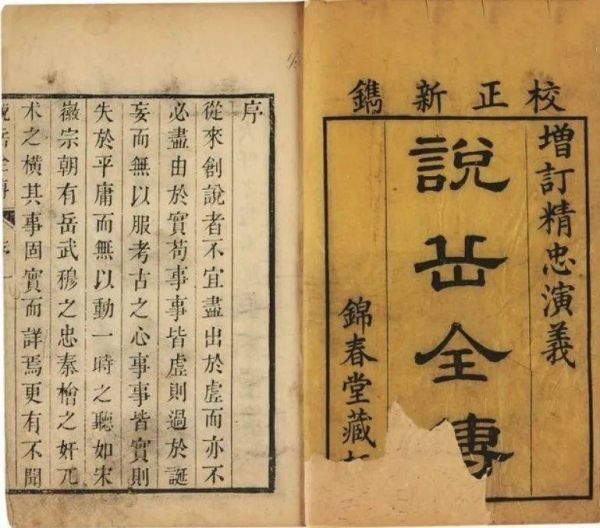 校正新鐫
增訂精忠演義
說岳全傳
錦春堂藏
序
從來創說者不宜盡出於虛而亦不
必盡由於實苟事事皆虛則過於誕
妄而無以服考古之心事事皆實則
失於平庸而無以動一時之聽如宋
徽宗朝有岳武穆之忠秦檜之奸兀
术之橫其事固實而詳焉更有不聞